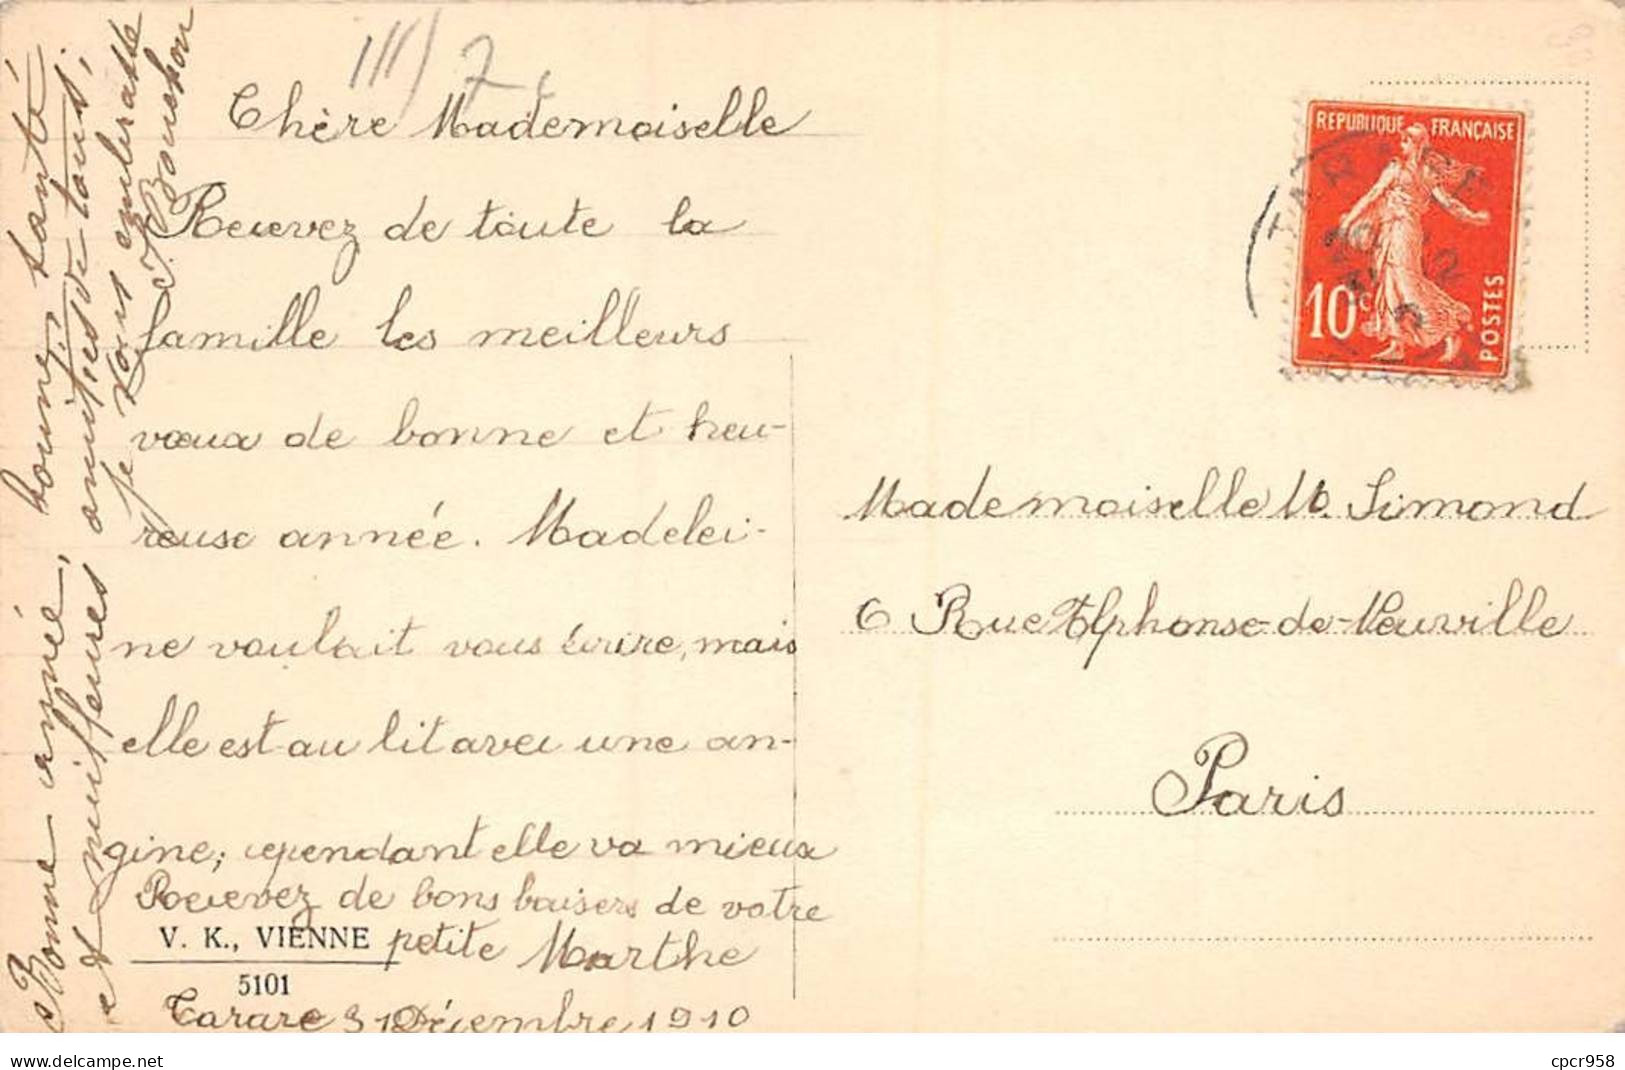 III) 7
Chère Mademoiselle
Recevez de toute la
famille les meilleurs
vœux de bonne et heu-
reuse année. Madelei-
ne voulait vous écrire, mais
elle est au lit avec une an-
gine, cependant elle va mieux
Recevez de bons baisers de votre
petite Marthe
Tarare 31 Décembre 1910
V. K., VIENNE
5101
Bonne année, bonne santé
et meilleures amitiés de tous,
je vous embrasse
Bouchon
REPUBLIQUE FRANÇAISE
10c
POSTES
TARARE
Mademoiselle M. Simond
6 Rue Alphonse-de-Neuville
Paris
delcampe.net
cpcr958